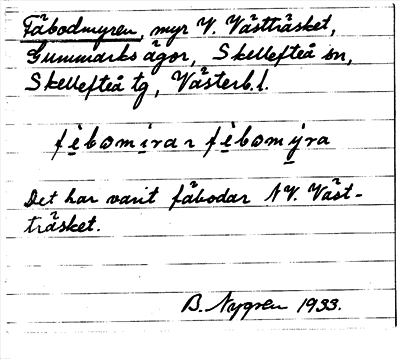 Fäbodmyren, myr V. Västträsket,
Gummarks ägor, Skellefteå sn,
Skellefteå tg, Västerb.l.
fèbωmìrar fèbωmýra
Det har varit fäbodar NV. Väst-
träsket.
B. Nygren 1933.